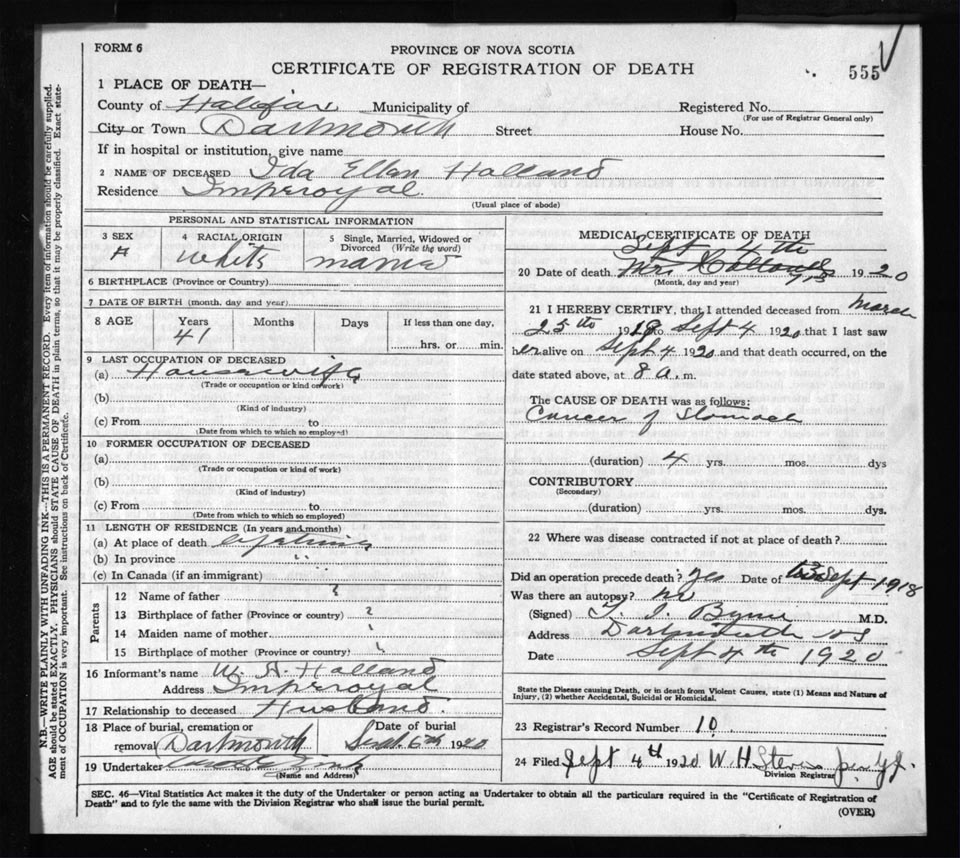 FORM 6
PROVINCE OF NOVA SCOTIA
CERTIFICATE OF REGISTRATION OF DEATH
555
1 PLACE OF DEATH—
County of Halifax Municipality of Registered No.
(For use of Registrar General only)
City or Town Dartmouth Street House No.
If in hospital or institution, give name
2 NAME OF DECEASED Ida Ellen Holland
Residence Imperoyal
(Usual place of abode)
PERSONAL AND STATISTICAL INFORMATION
3 SEX F
4 RACIAL ORIGIN White
5 Single, Married, Widowed or Divorced (Write the word) married
6 BIRTHPLACE (Province or Country)
7 DATE OF BIRTH (month, day and year)
8 AGE Years 41 Months Days If less than one day, hrs. or min.
9 LAST OCCUPATION OF DECEASED
(a) Housewife
(Trade or occupation or kind of work)
(b)
(Kind of industry)
(c) From to
(Date from which to which so employed)
10 FORMER OCCUPATION OF DECEASED
(a)
(Trade or occupation or kind of work)
(b)
(Kind of industry)
(c) From to
(Date from which to which so employed)
11 LENGTH OF RESIDENCE (In years and months)
(a) At place of death lifetime
(b) In province "
(c) In Canada (if an immigrant)
Parents
12 Name of father ?
13 Birthplace of father (Province or country) ?
14 Maiden name of mother "
15 Birthplace of mother (Province or country) "
16 Informant's name W. A. Holland
Address Imperoyal
17 Relationship to deceased Husband.
18 Place of burial, cremation or removal Dartmouth Date of burial Sept. 6th 1920
19 Undertaker
(Name and Address)
MEDICAL CERTIFICATE OF DEATH
Sept 4th
20 Date of death 1920
(Month, day and year)
21 I HEREBY CERTIFY, that I attended deceased from March
25th 1918 to Sept 4 1920 that I last saw
her alive on Sept 4 1920 and that death occurred, on the
date stated above, at 8 a.m.
The CAUSE OF DEATH was as follows:
Cancer of Stomach
(duration) 4 yrs. mos. dys
CONTRIBUTORY
(Secondary)
(duration) yrs. mos. dys.
22 Where was disease contracted if not at place of death?
Did an operation precede death? yes Date of Sept 1918
Was there an autopsy? no
(Signed) M.D.
Address Dartmouth NS
Date Sept 4th 1920
State the Disease causing Death, or in death from Violent Causes, state (1) Means and Nature of
Injury, (2) whether Accidental, Suicidal or Homicidal.
23 Registrar's Record Number 10
24 Filed Sept 4th 1920 W. H. Stevens
Division Registrar
SEC. 46—Vital Statistics Act makes it the duty of the Undertaker or person acting as Undertaker to obtain all the particulars required in the "Certificate of Registration of
Death" and to fyle the same with the Division Registrar who shall issue the burial permit.
(OVER)
N.B.—WRITE PLAINLY WITH UNFADING INK—THIS IS A PERMANENT RECORD. Every item of information should be carefully supplied.
AGE should be stated EXACTLY. PHYSICIANS should STATE CAUSE OF DEATH in plain terms, so that it may be properly classified. Exact state-
ment of OCCUPATION is very important. See instructions on back of Certificate.